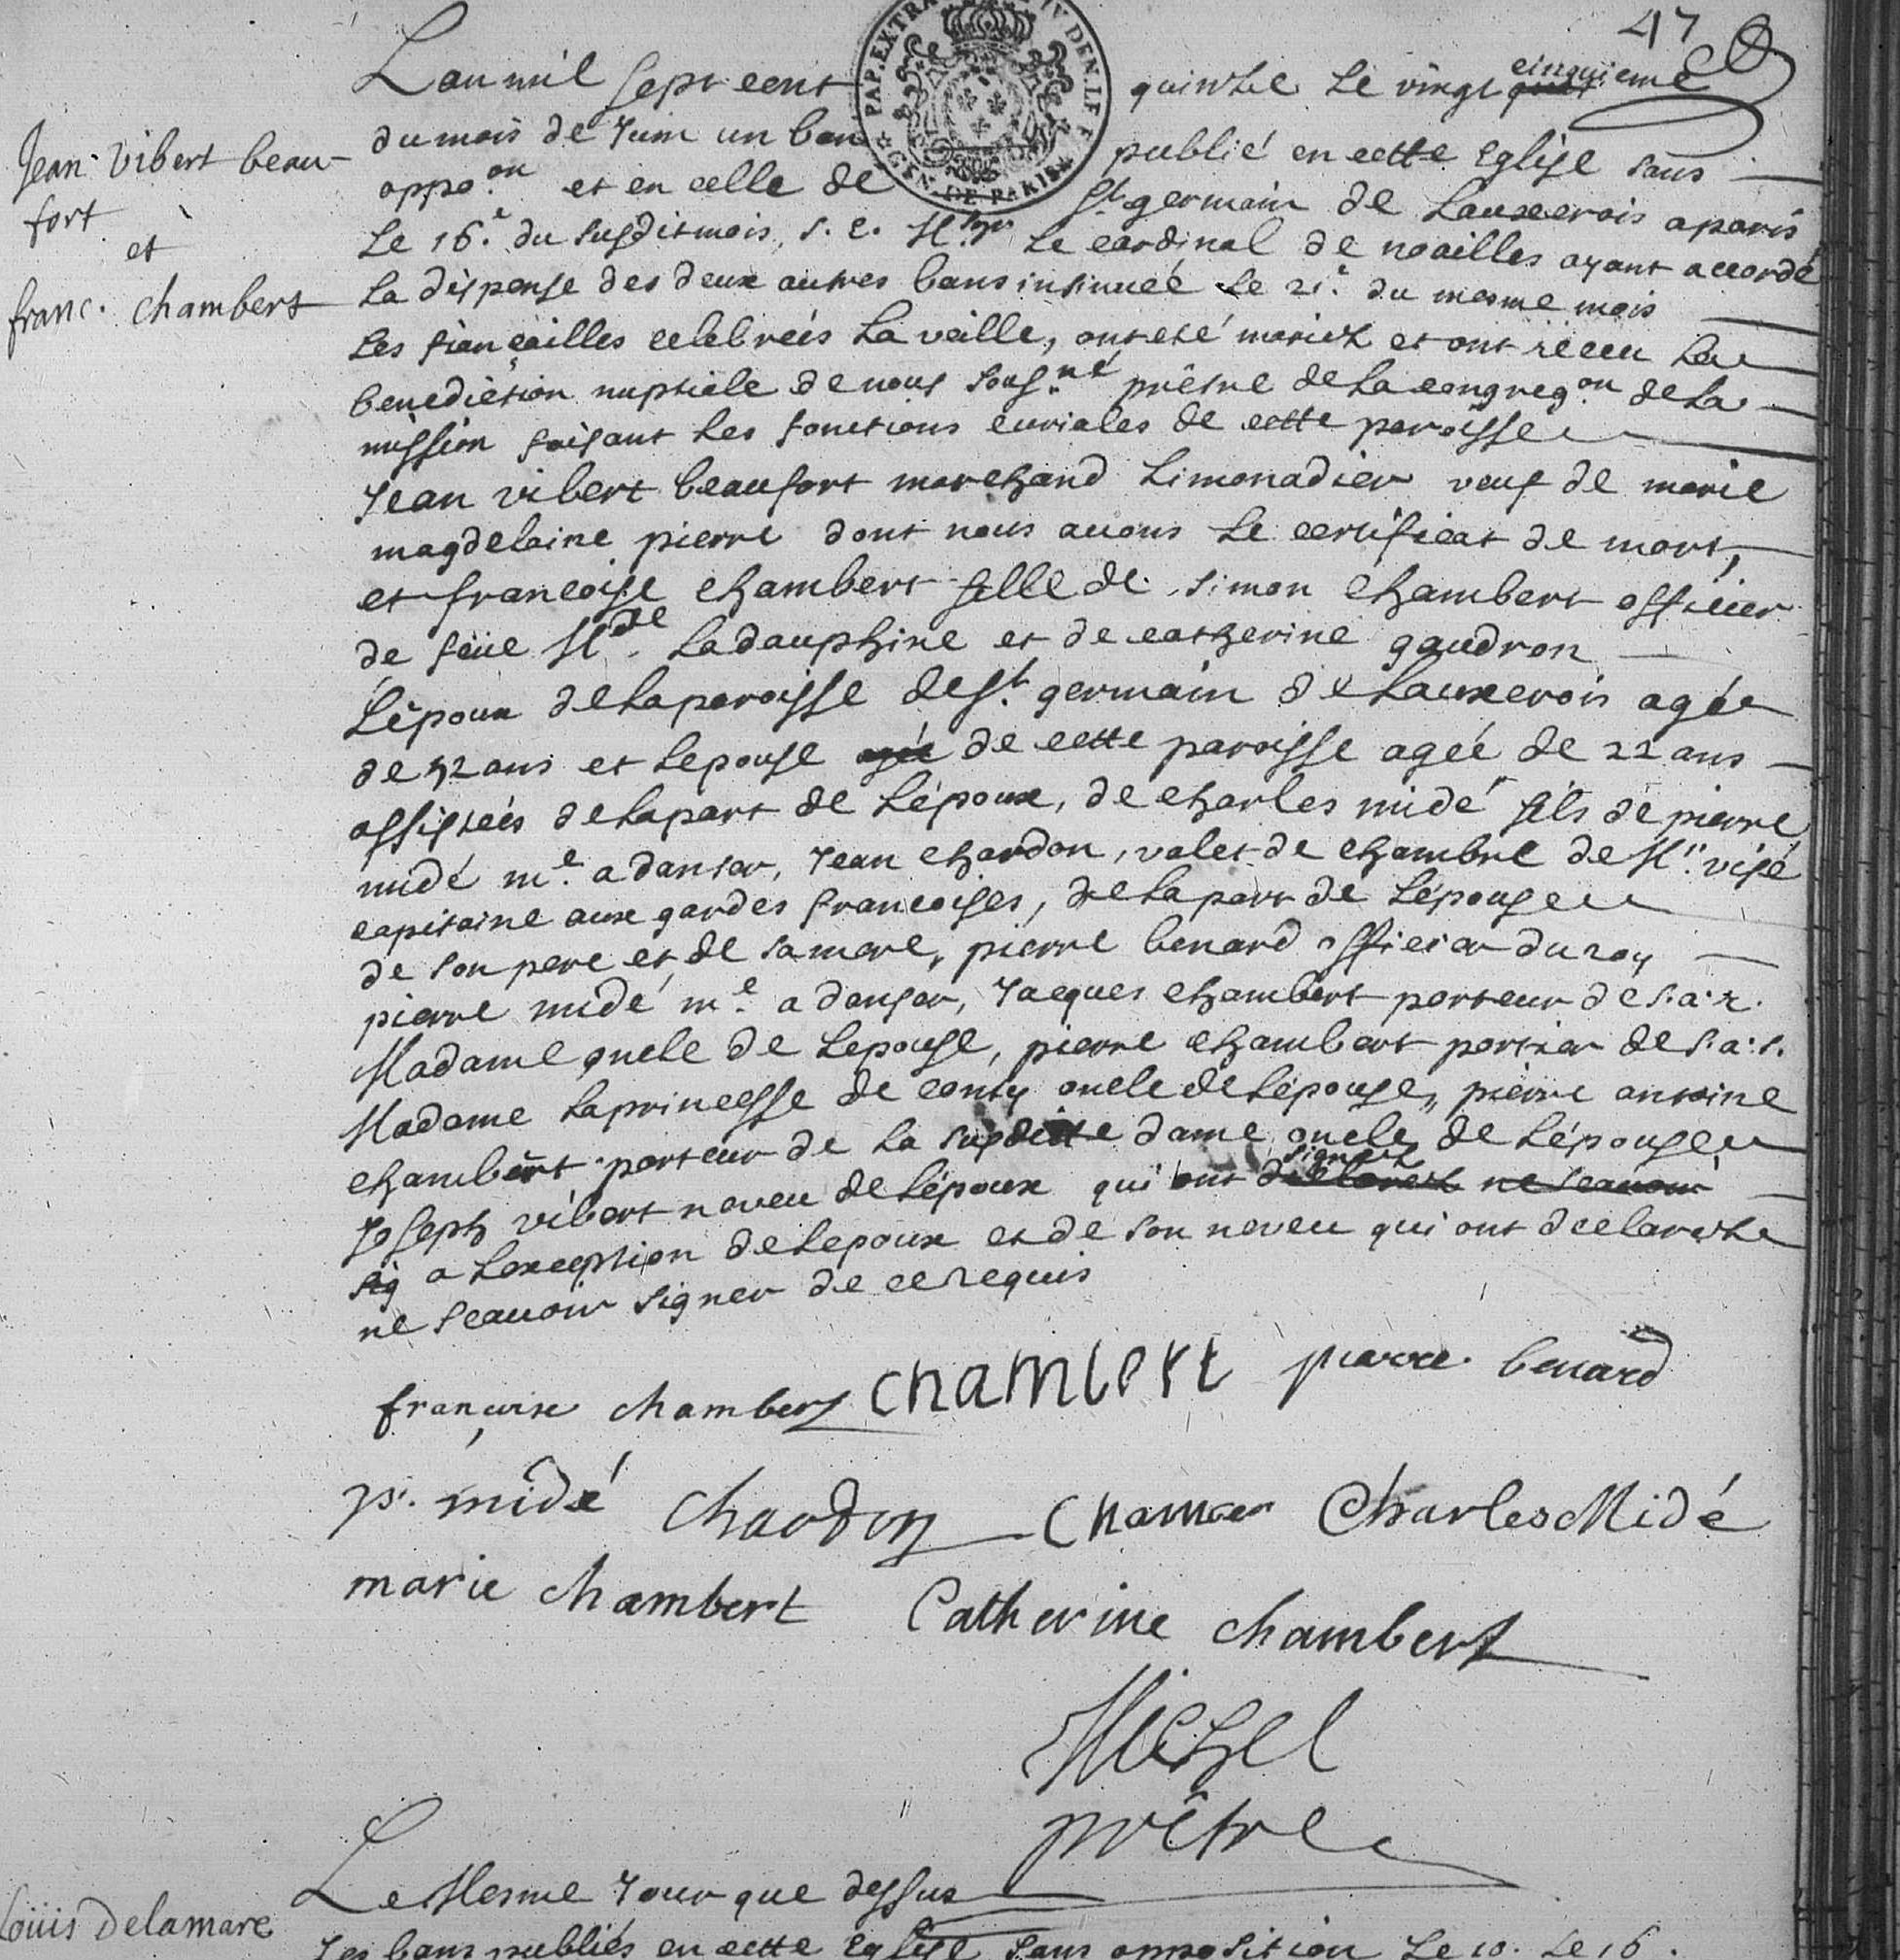 47
Lan mil sept cent quinze le vingt quat cinquieme
du mois de Juin un ban publié en cette Eglise sans
oppo.on et en celle de St germain de Lauxerois a paris
Le 16.e du susdit mois, S. E. Mgr Le cardinal de noailles ayant accordé
La dispense des deux autres bans insinueé Le 21.e du mesme mois
Les fiançailles celebreés La veille, ont eté mariez et ont receu La
benediction nuptiale de nous sous.né prêtre de La congreg.on de La
mission faisant Les fonctions curiales de cette paroisse
Jean vibert beaufort marchand Limonadier veuf de marie
magdelaine pierre dont nous auons Le certificat de mort,
et francoise chambert fille de simon chambert officier
de feüe Mde La dauphine et de catherine gaudron
L'époux de La paroisse de St. germain de Lauxerois agée
de 52 ans et Lepouse agée de cette paroisse agée de 22 ans
assisteés de La part de L'époux, de charles midé fils de pierre
midé m.e a danser, Jean chardon, valet de chambre de Mr. visé
capitaine aux gardes francoises, de La part de L'épouse
de son pere et de sa mere, pierre benard officier du roy
pierre midé m.e a danser, Jacques chambert porteur de s.a.r.
Madame oncle de Lepouse, pierre chambert portier de s.a.s.
Madame La princesse de conty oncle de L'épouse, pierre antoine
chambert porteur de La susditte dame oncle de L'épouse
Joseph vibert neveu de L'époux qui ont declarez ne scauoir signez
sig a Lexception de Lepoux et de son neveu qui ont declarez
ne scauoir signer de ce requis
françoise chambert chambert pierre benard
p. midé chardon Charles Midé
marie chambert Catherine chambert
Michel
prêtre
Le Mesme Jour que dessus
Les bans publiés en cette Eglise sans opposition Le 10. Le 16.
Jean Vibert beau-
fort
et
franc. chambert
Loüis Delamare
PAP. EXTRA
GEN. DE PARIS